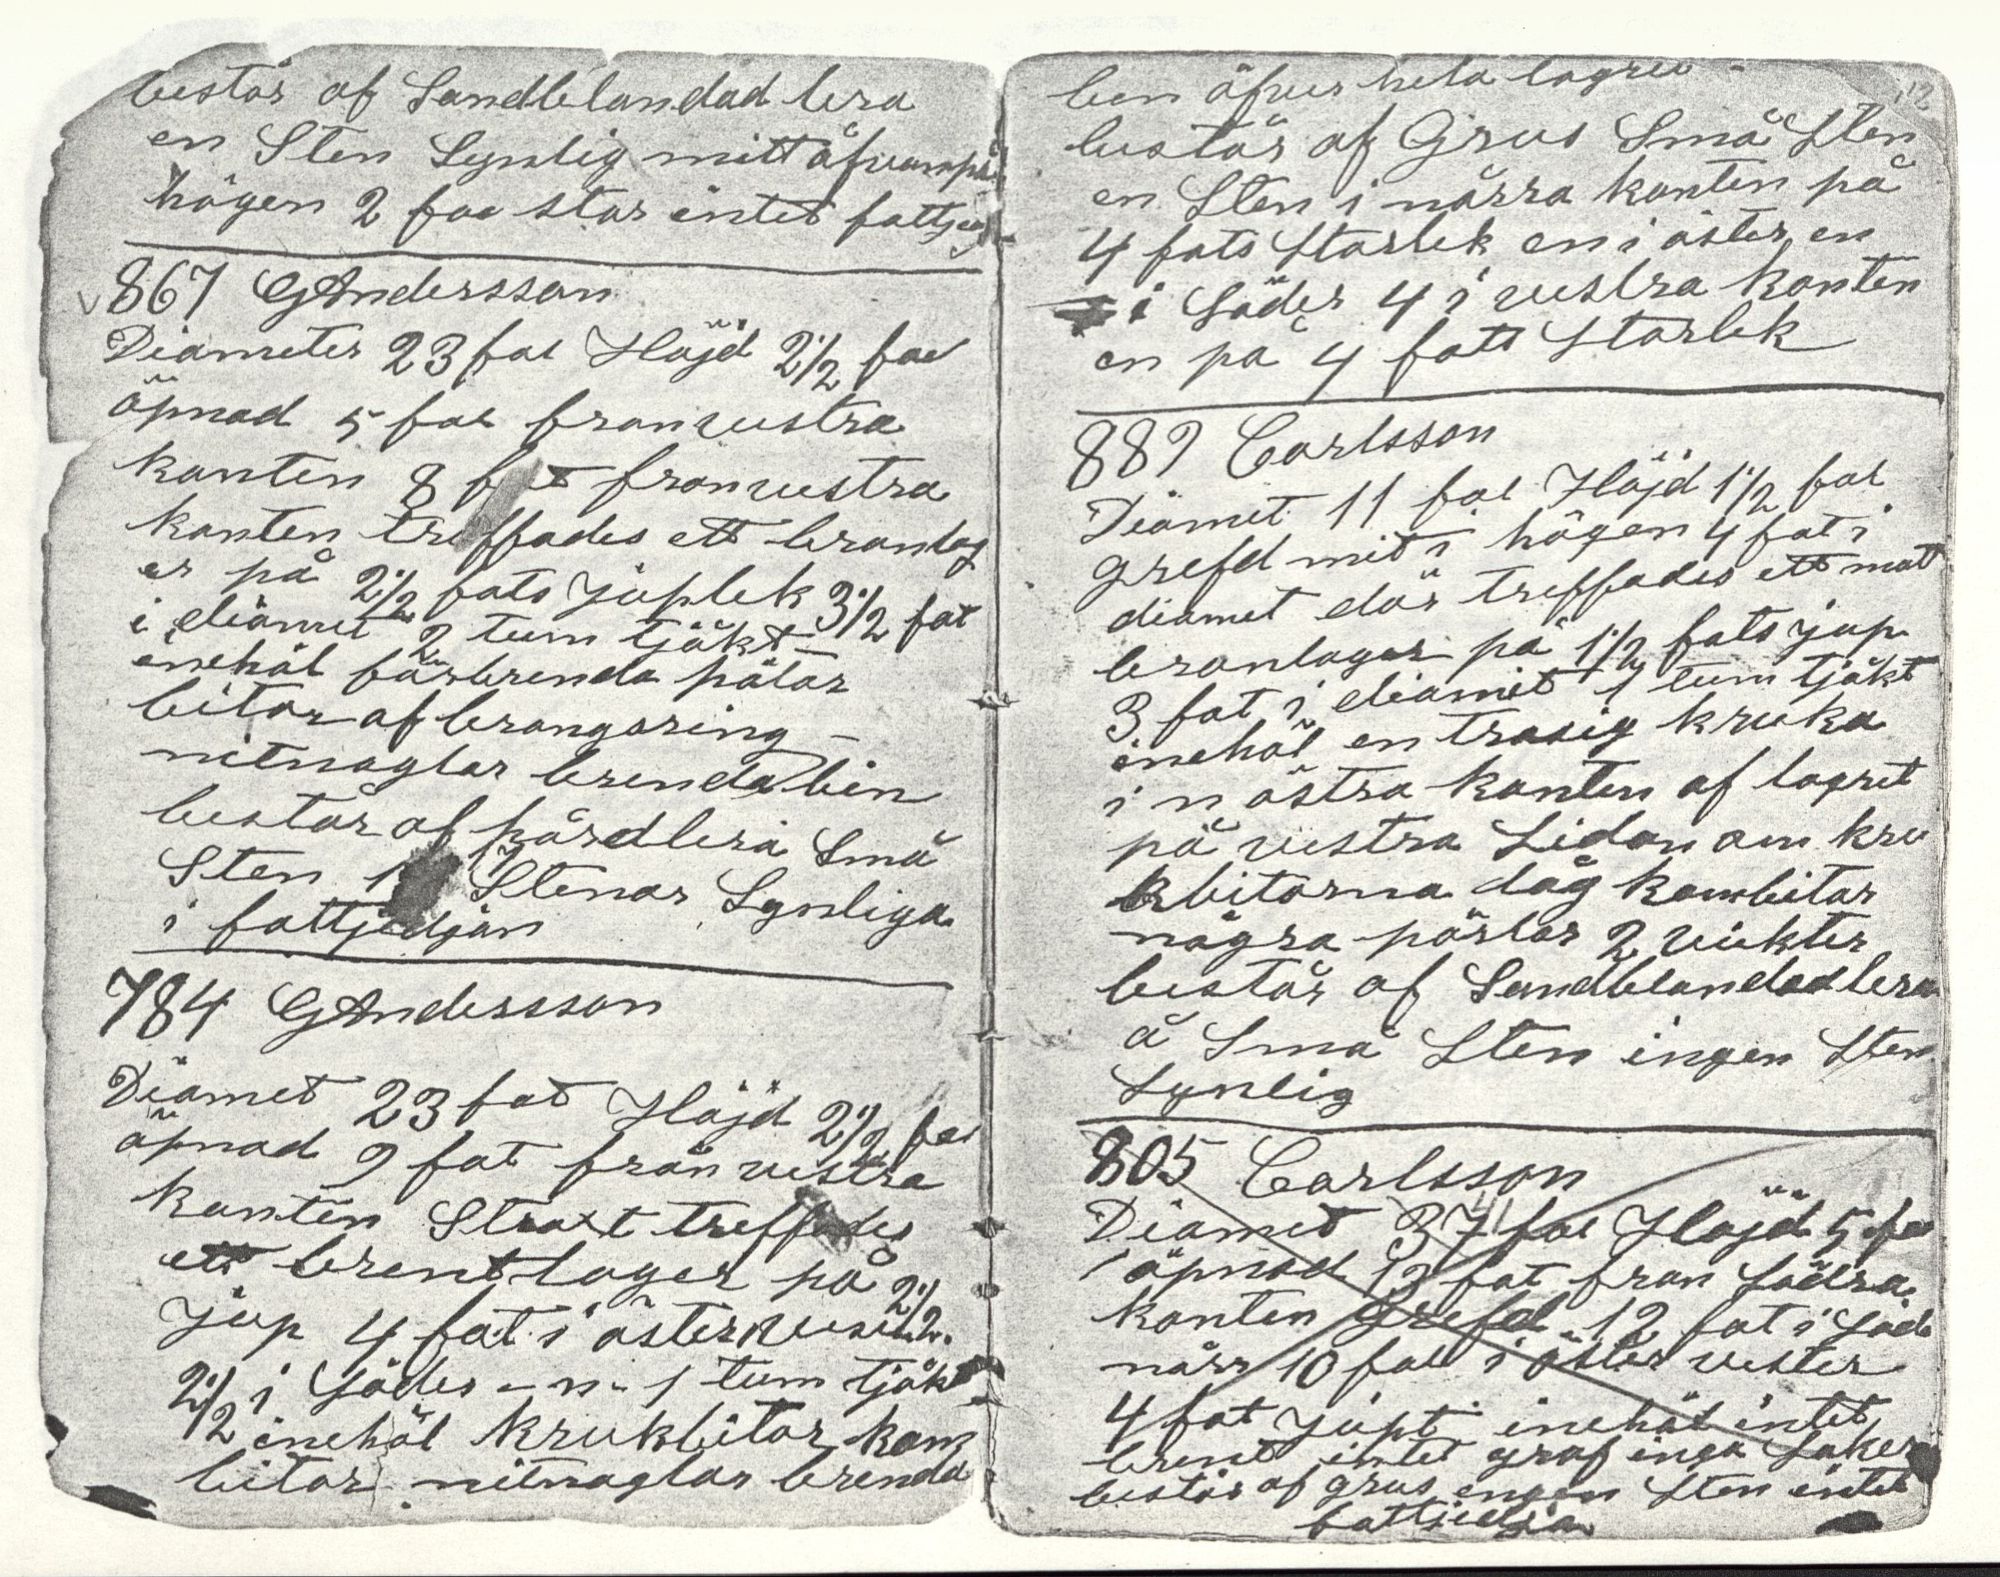 bestås af Sandblandad lera
en Sten Synlig mitt åfvanpå
högen 2 fot stor intet fattjed
867 GAndersson
Diameter 23 fot Höjd 2 1/2 fot
öpnad 5 fot from vestra
kanten 8 fot from vestra
kanten treffades ett branlag
er på 2 1/2 fots juplek 3 1/2 fot
i diamet 2 tum tjökt –
inehöl förbrenda pälar
bitar af brongsring –
nitnaglar brenda bin
består af hårdlera Små
Sten 1 Stenar Synliga
i fottjedjan
784 GAndersson
Diamet 23 fot Höjd 2 1/2 fot
öpnad 9 fot från vestra
kanten Straxt treffades
ett brent lager på 2 1/2
jup 4 fot i öster
2 1/2 i Söder – n – 1 tum tjökt
inehöl krukbitar kam
bitar nitnaglar brenda
12
ben öfver hela lagret –
bestås af Grus Små Sten
en Sten i nårra kanten på
4 fots Storlek en i öster en
i Söder 4 i vestra kanten
en på 4 fott Storlek
889 Carlsson
Diamet 11 fot Höjd 1 1/2 fot
grefd mit i högen 4 fot i
diamet där treffades ett mat
branlager på 1 1/2 fots jup
3 fot i diamet 1 tum tjökt
inehöl en trasig kruka
i n östra kanten af lagret
på vestra Sidan om kru
kbitarna låg kambitar
några pärlar 2 vickter
bestås af Sandblandad lera
å Små Sten ingen Sten
Synlig
805 Carlsson
Diamet 37 fot Höjd 5 fot
öpnad 13 fot fran Södra
kanten grefd 12 fot i Söde
nårr 10 fot i öster vester
4 fot jupt inehöl intet
brent intet graf inga Saker
bestås af grus engen Sten intet
fottjedja